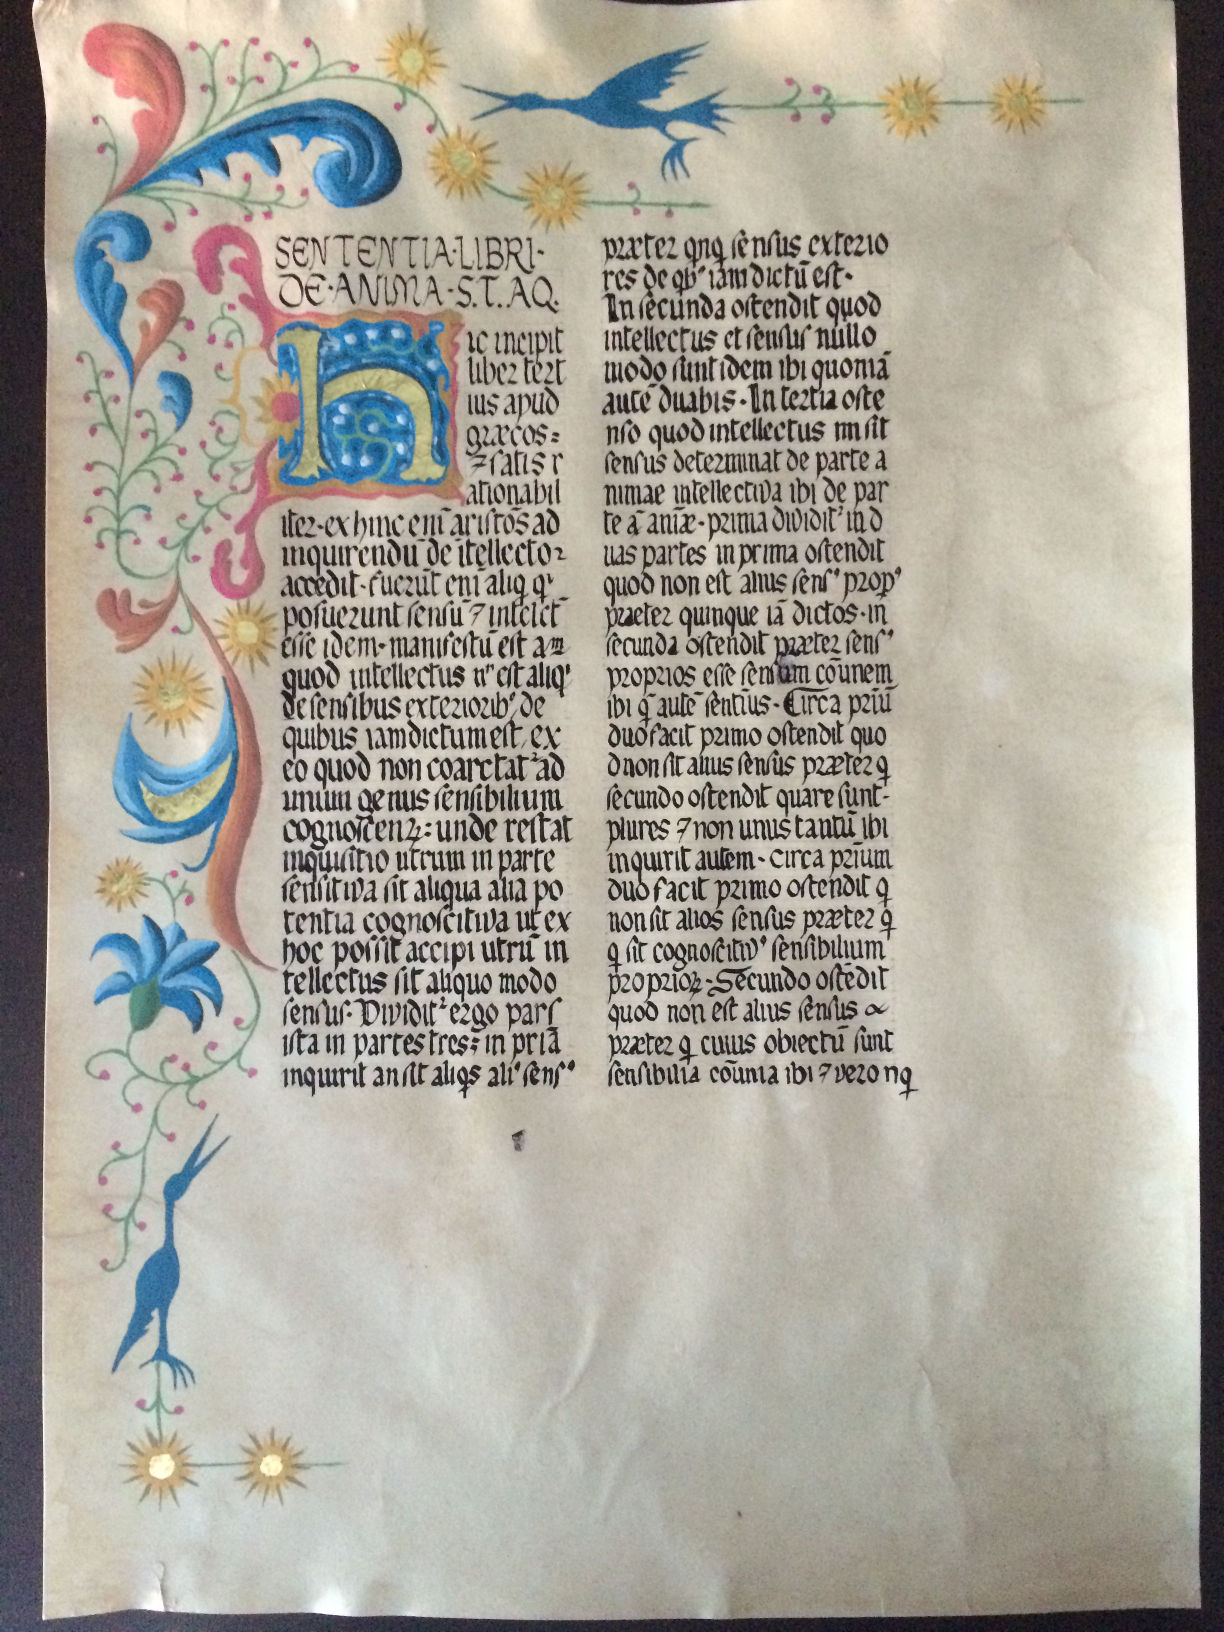 SENTENTIA·LIBRI·
DE·ANIMA·S.T.AQ.
hic incipit
liber tert
ius apud
græcos:
⁊ satis r
ationabil
iter·ex hinc eni᷑ aristo᷑s ad
inquirendū de ītellecto
accedit·fuerūt enī aliq qͥ
posuerunt sensū ⁊ intelct᷑
esse idem·manifestū est am̄
quod intellectus n̄ est aliqͥ
de sensibus exteriorib᾽ de
quibus iam dictum est, ex
eo quod non coarctat᾽ ad
unum genus sensibilium
cognoscenꝝ: unde restat
inquisitio utrum in parte
sensitiva sit aliqua alia po
tentia cognoscitiva ut ex
hoc possit accipi utrū in
tellectus sit aliquo modo
sensus· Dividit᾽ ergo pars
ista in partes tres: in priā
inquirit an sit aliqs ali᾽ sens᾽
præter qnq sensus exterio
res de qb᾽ iam dictū est·
In secunda ostendit quod
intellectus et sensus nullo
modo sunt idem ibi quoniā
autē duabis·In tertia oste
nso quod intellectus nn sit
sensus determinat de parte a
nimae intellectiva ibi de par
te ā aniæ·prima dividit᾽ in d
uas partes in prima ostendit
quod non est alius sens᾽ prop᾽
præter quinque iā dictos·in
secunda ostendit præter sens᾽
proprios esse sensum cōunem
ibi q̄ autē sentīus·Circa priū
duo facit primo ostendit quo
d non sit alius sensus præter q̨
secundo ostendit quare sunt·
plures ⁊ non unus tantū ibi
inquirit autem·circa prīum
duo facit primo ostendit q̨
non sit alios sensus præter q̨
q̨ sit cognoscitiv᾽ sensibilium
proprioꝝ·Secundo ostēdit
quod non est alius sensus
præter q̨ cuius obiectū sunt
sensibilia cōunia ibi ⁊ vero nq̨